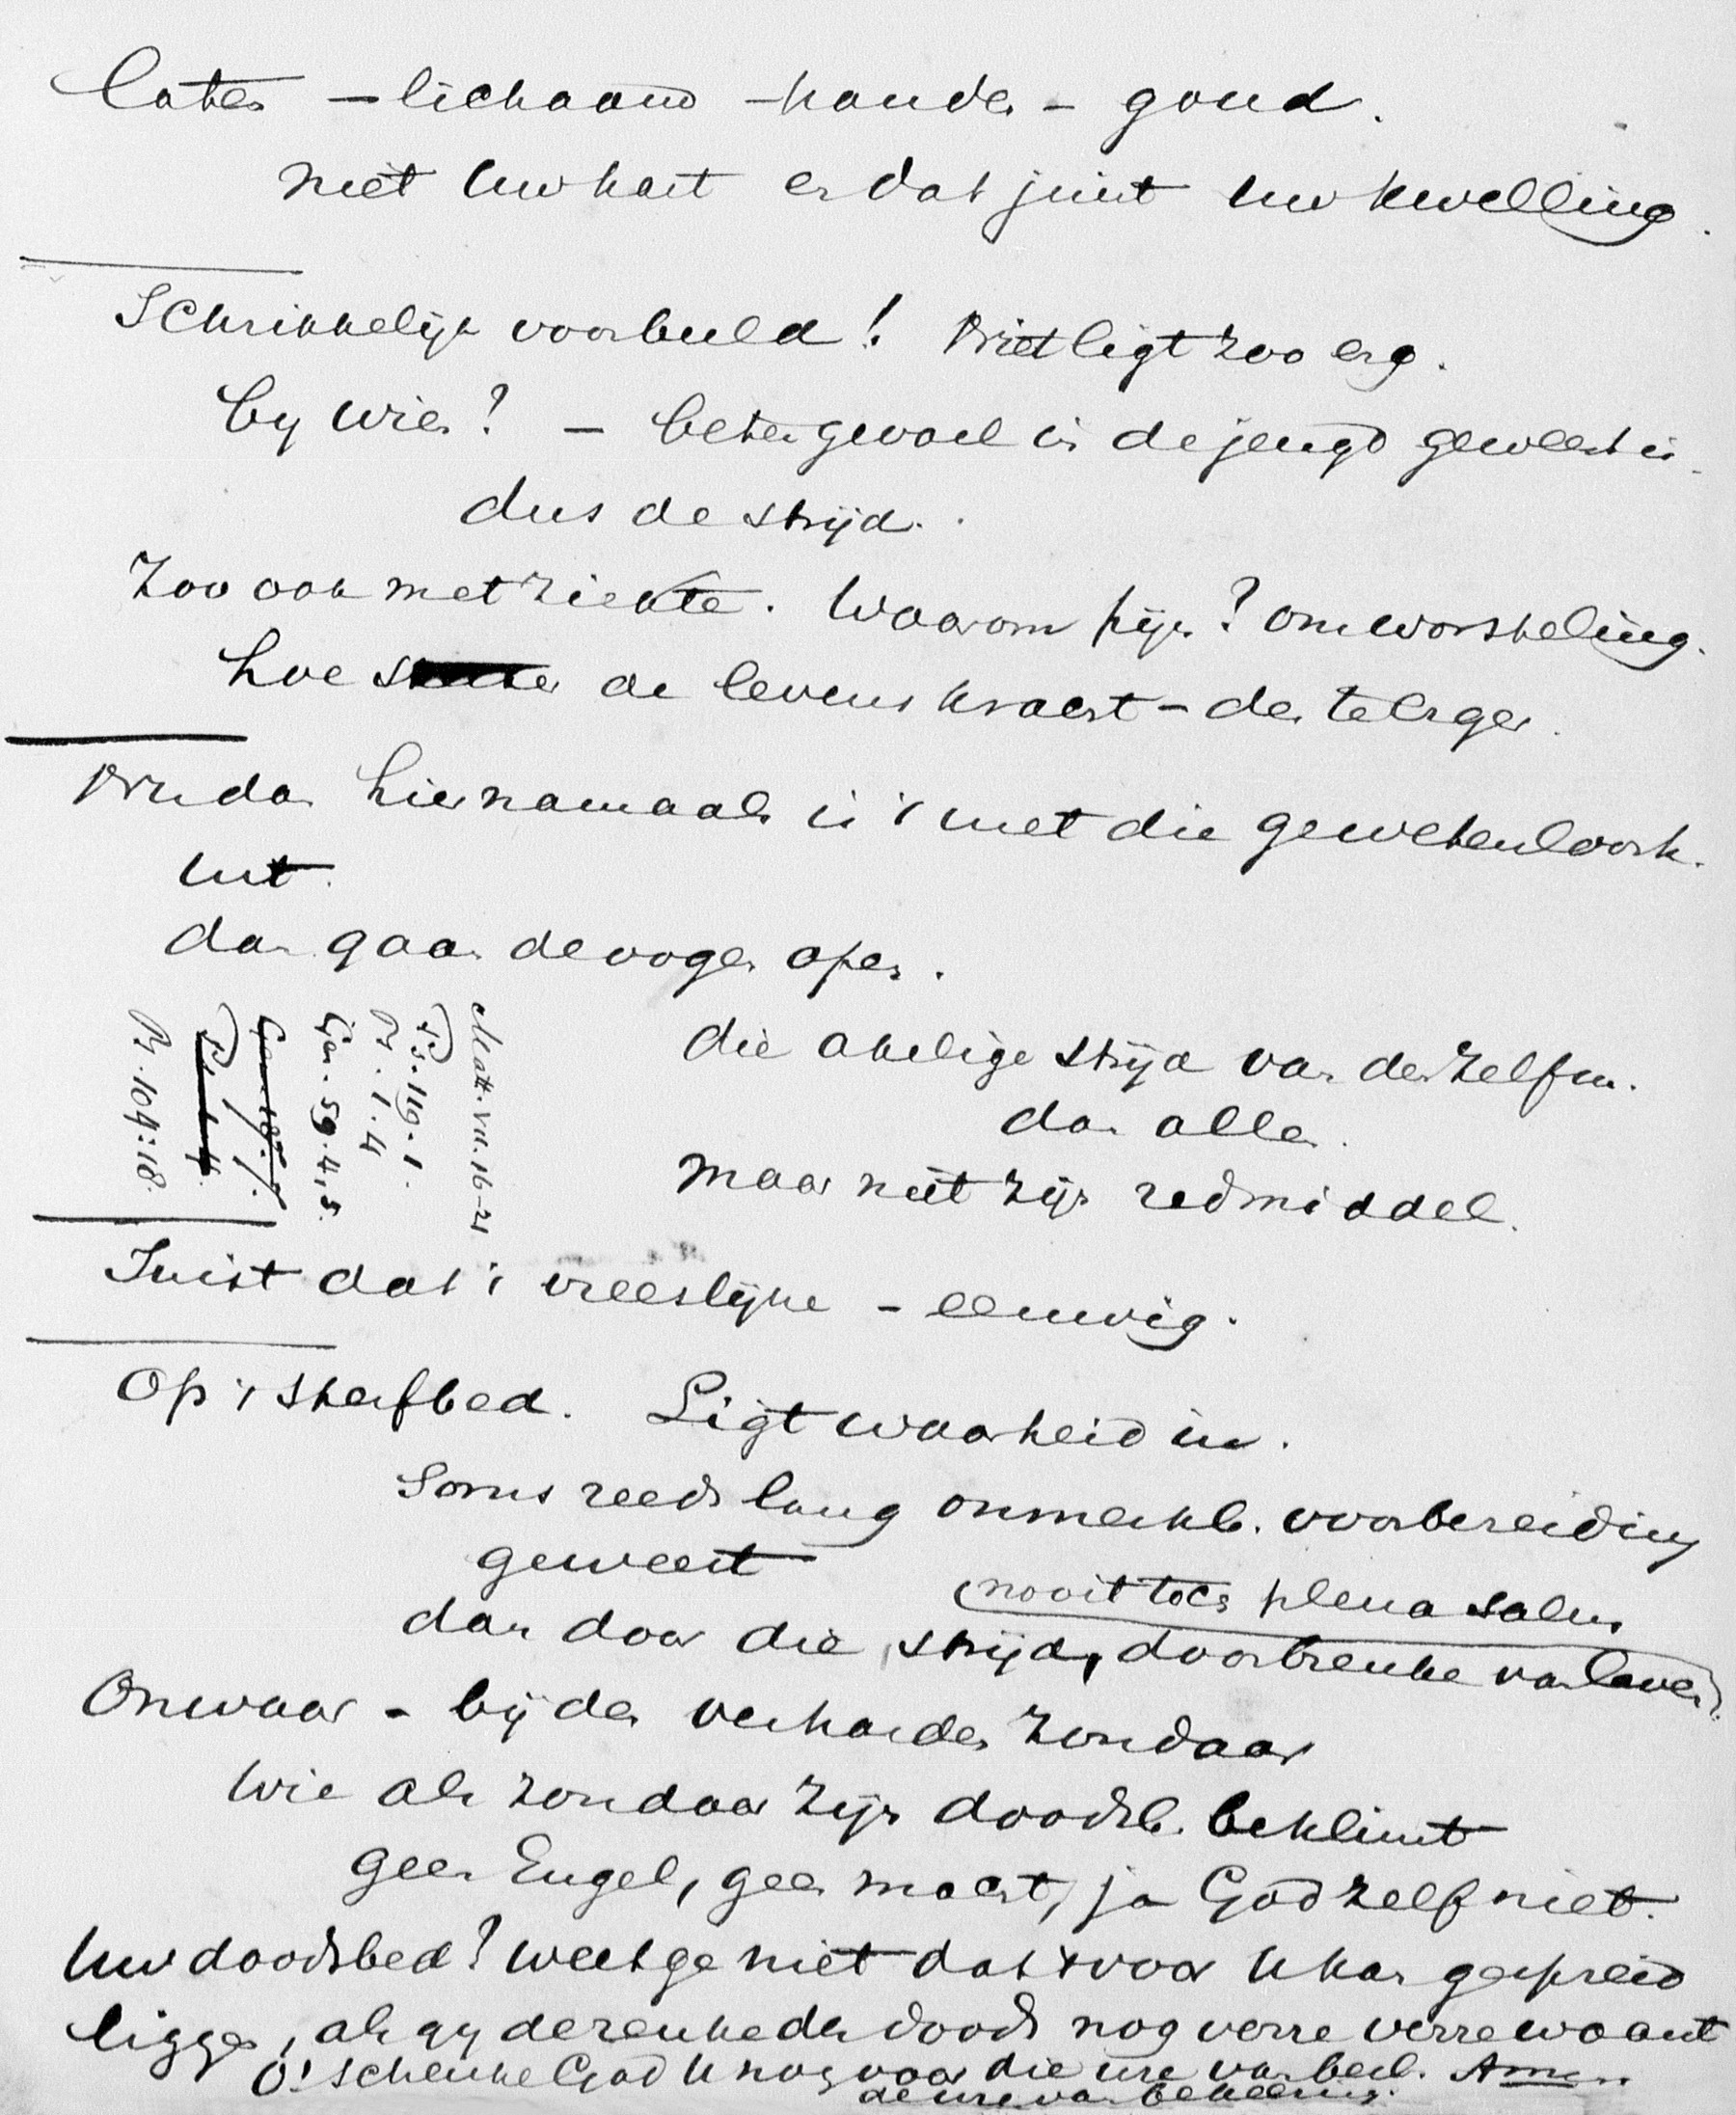 laten – lichaam – handen – goud.
niet Uw hart en dat juist uw kwelling.
Schrikkelijk voorbeeld! Niet ligt zoo erg.
by wien? – beter gevoel in de jeugd geweest is
dus de strijd.
Zoo ook met ziekte. Waarom pijn? om worsteling.
hoe de levenskracht – des te erger.
hiernamaals is 't met die gewetenloosh.
uit.
dan gaan de oogen open.
Matt. VII. 16–21
Ps. 119. 1.
Ps. 1. 4
Ger. 59. 4, 5.
Ps. 104:18.
die akelige strijd van den zelfm.
dan allen.
maar niet zijn redmiddel.
Juist dat 't vreeslijke – eeuwig.
Op 't sterfbed. Ligt waarheid in.
Soms reeds lang onmerkb. voorbereiding
geweest
nooit toch plena salus
dan door die strijd, doorbreuke van leven.
Onwaar – bij den verharden zondaar
Wie als zondaar zijn doodsb. beklimt
geen Engel, geen macht, ja God zelf niet.
Uw doodsbed? weet ge niet dat 't voor U kan gespreid
liggen, als gy de reuke des doods nog verre verre waant
O! schenke God U nog voor die ure van beul. Amen.
de ure van bekeering.